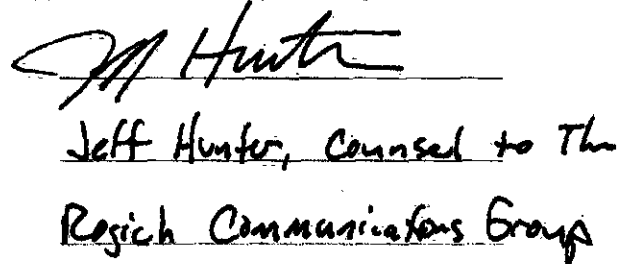 J Hunter
Jeff Hunter, Counsel to The
Rogich Communications Group